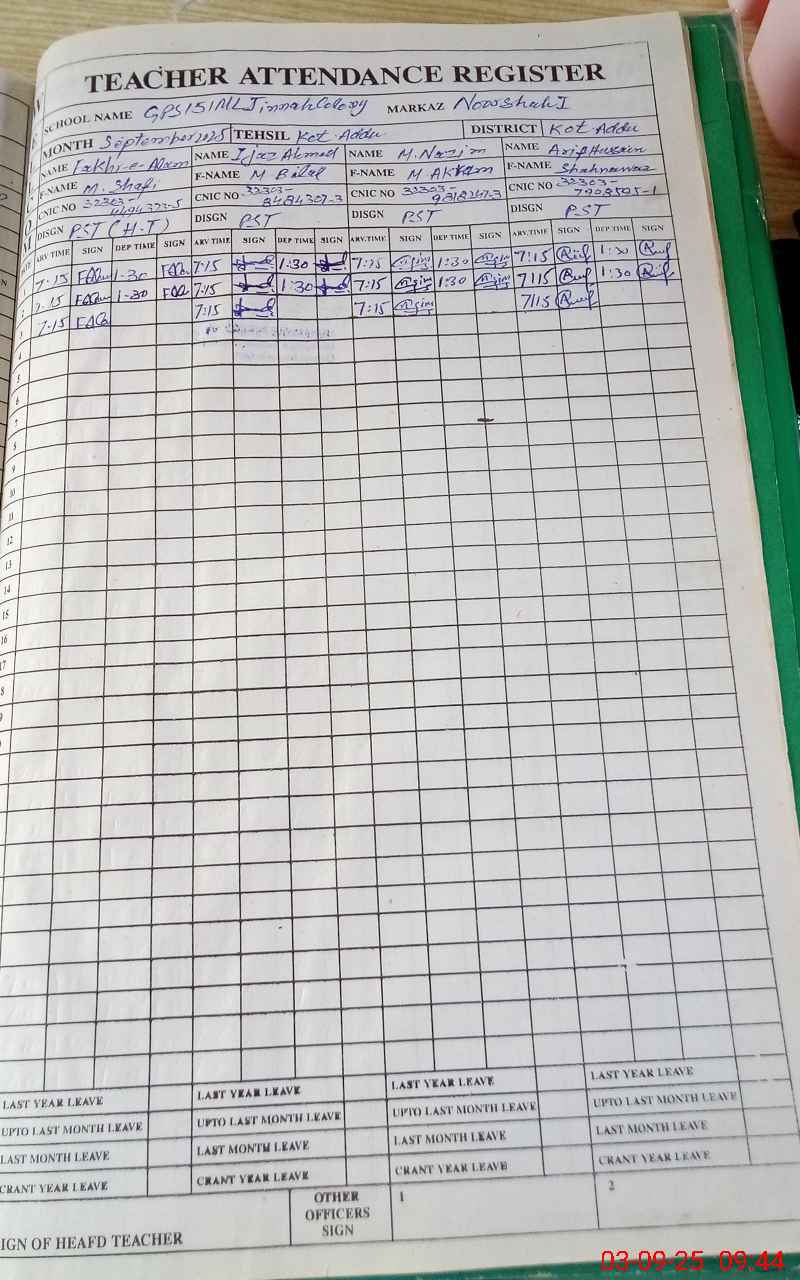 TEACHER ATTENDANCE REGISTER
SCHOOL NAME GPS 151 ML Jinnah Colony MARKAZ Nowshah I
MONTH September 2025 TEHSIL Kot Addu DISTRICT Kot Addu
NAME Fakhr-e-Alam NAME Ijaz Ahmed NAME M. Nazim NAME Arif Hussain
F-NAME M. Shafi F-NAME M Bilal F-NAME M Akram F-NAME Shahnawaz
CNIC NO 32303- CNIC NO 32303- CNIC NO 32303- CNIC NO 32303-
8484307-3 7908505-1
DISGN PST (H.T) DISGN PST DISGN PST DISGN PST
ARV.TIME SIGN DEP TIME SIGN ARV TIME SIGN DEP TIME SIGN ARV.TIME SIGN DEP TIME SIGN ARV.TIME SIGN DEP TIME SIGN
7-15 1-30 7:15 1:30 7:15 1:30 7:15 1:30
2 7.15 1-30 7:15 1:30 7:15 1:30 7:15 1:30
3 7-15 7:15 7:15 7:15
4
5
6
7
8
9
10
11
12
13
14
15
16
17
8
9
LAST YEAR LEAVE LAST YEAR LEAVE LAST YEAR LEAVE LAST YEAR LEAVE
UPTO LAST MONTH LEAVE UPTO LAST MONTH LEAVE UPTO LAST MONTH LEAVE UPTO LAST MONTH LEAVE
LAST MONTH LEAVE LAST MONTH LEAVE LAST MONTH LEAVE LAST MONTH LEAVE
CRANT YEAR LEAVE CRANT YEAR LEAVE CRANT YEAR LEAVE CRANT YEAR LEAVE
IGN OF HEAFD TEACHER OTHER OFFICERS SIGN 1 2
03-09-25 09:44